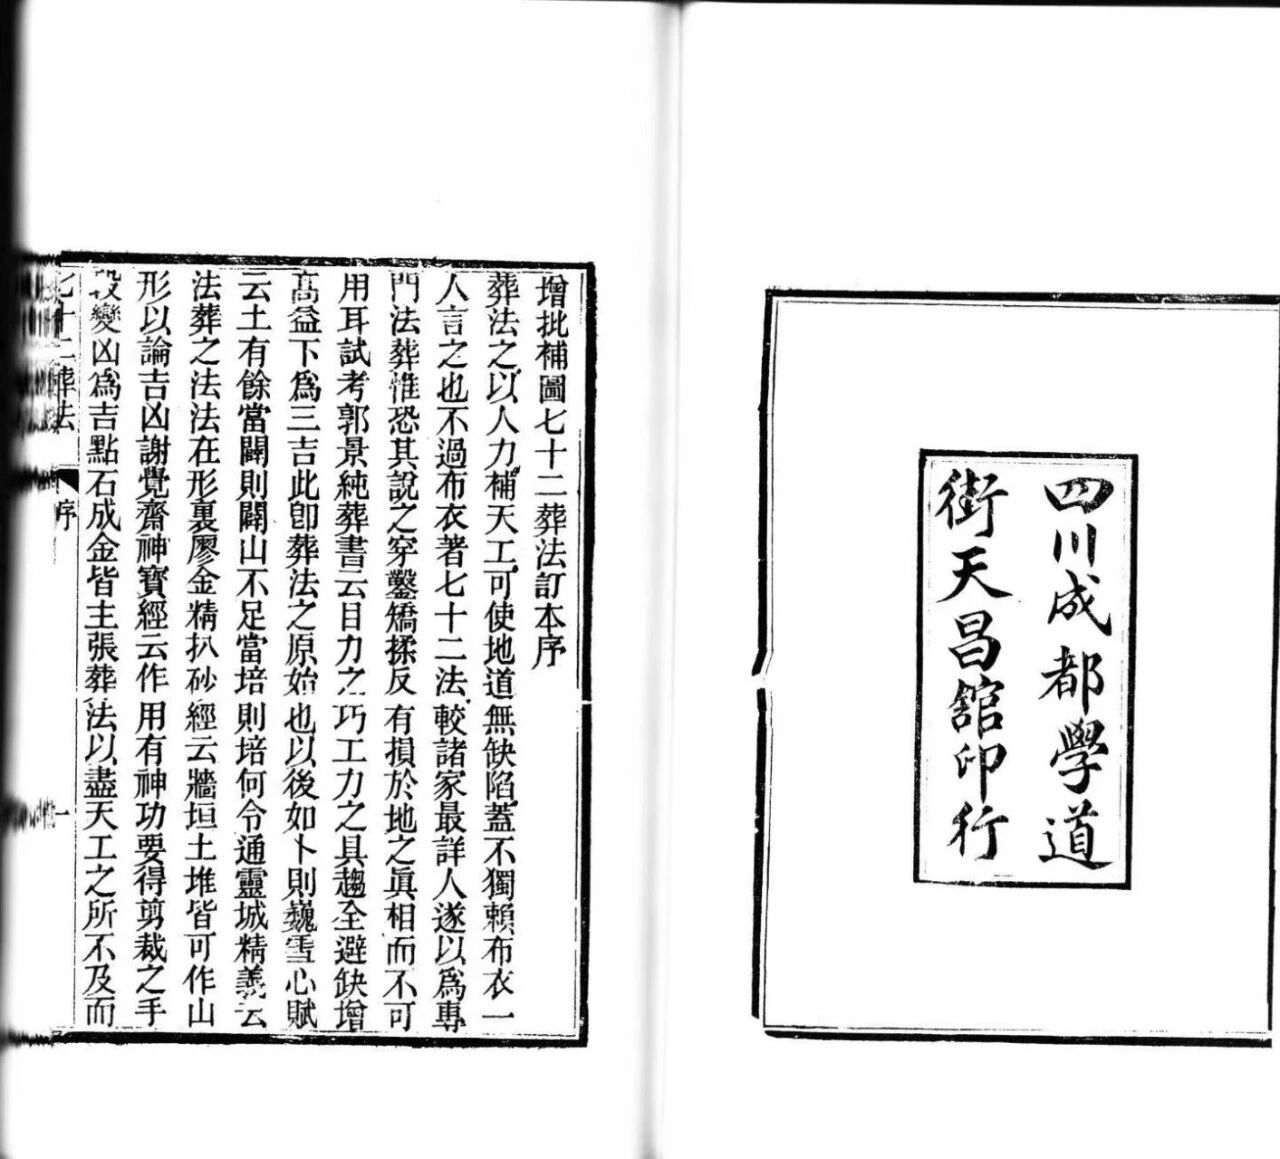 四川成都學道
街天昌舘印行
增批補圖七十二葬法訂本序
葬法之以人力補天工可使地道無缺陷蓋不獨賴布衣一
人言之也不過布衣著七十二法較諸家最詳人遂以爲專
門法葬惟恐其說之穿鑿矯揉反有損於地之眞相而不可
用耳試考郭景純葬書云目力之巧工力之具趨全避缺增
髙益下爲三吉此卽葬法之原始也以後如卜則巍雪心賦
云土有餘當闢則闢山不足當培則培何令通靈城精義云
法葬之法法在形裏廖金精扒砂經云牆垣土堆皆可作山
形以論吉凶謝覺齋神寳經云作用有神功要得剪裁之手
段變凶爲吉點石成金皆主張葬法以盡天工之所不及而
七十二葬法
序
一